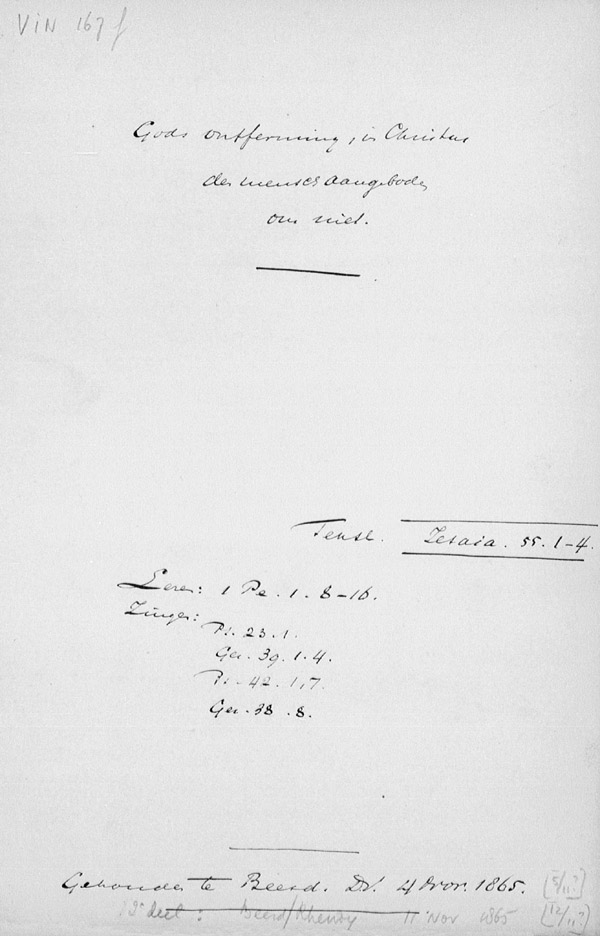 VIN 167 f
Gods ontferming, in Christus
den mensch aangeboden
om niet.
Tekst. Jesaia. 55. 1-4.
Lezen: 1 Pe. 1. 8-16.
Zingen:
Ps. 23. 1.
Gez. 39. 1. 4.
Ps. 42. 1, 7.
Gez. 38. 8.
Gehouden te Beesd. Dv. 4 Nov. 1865. [5/11?]
2e deel: Beesd/Rhenoy 11 Nov 1865 [12/11?]